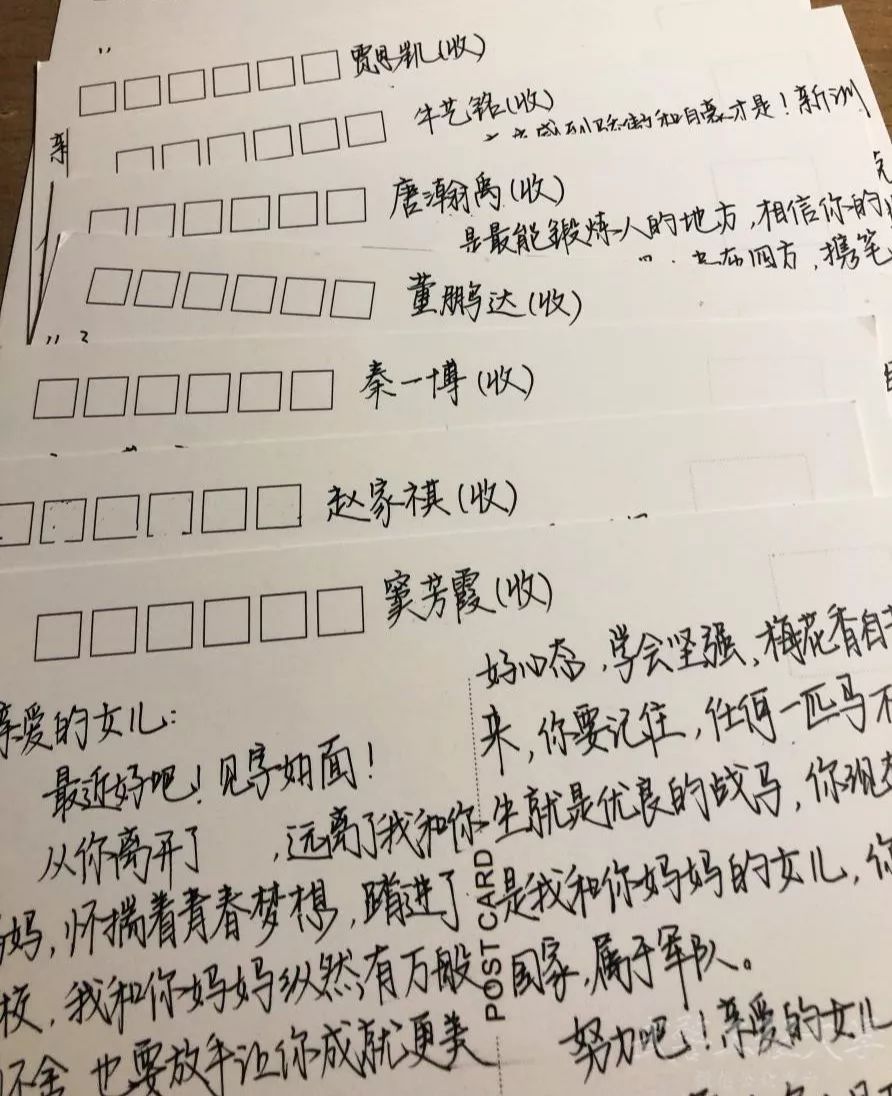 贾思凯(收)
牛艺铭(收)
和自豪才是！新训
亲
唐瀚禹(收)
是最能锻炼人的地方，相信你的
在四方，携笔
董鹏达(收)
秦一博(收)
赵家祺(收)
窦芳霞(收)
好心态，学会坚强，梅花香自
来，你要记住，任何一匹马不
生就是优良的战马，你现在
是我和你妈妈的女儿，你
国家，属于军队。
努力吧！亲爱的女儿
亲爱的女儿：
最近好吧！见字如面！
从你离开了 ，远离了我和你
妈，怀揣着青春梦想，踏进了
校，我和你妈妈纵然有万般
不舍 也要放手让你成就更美
POST CARD